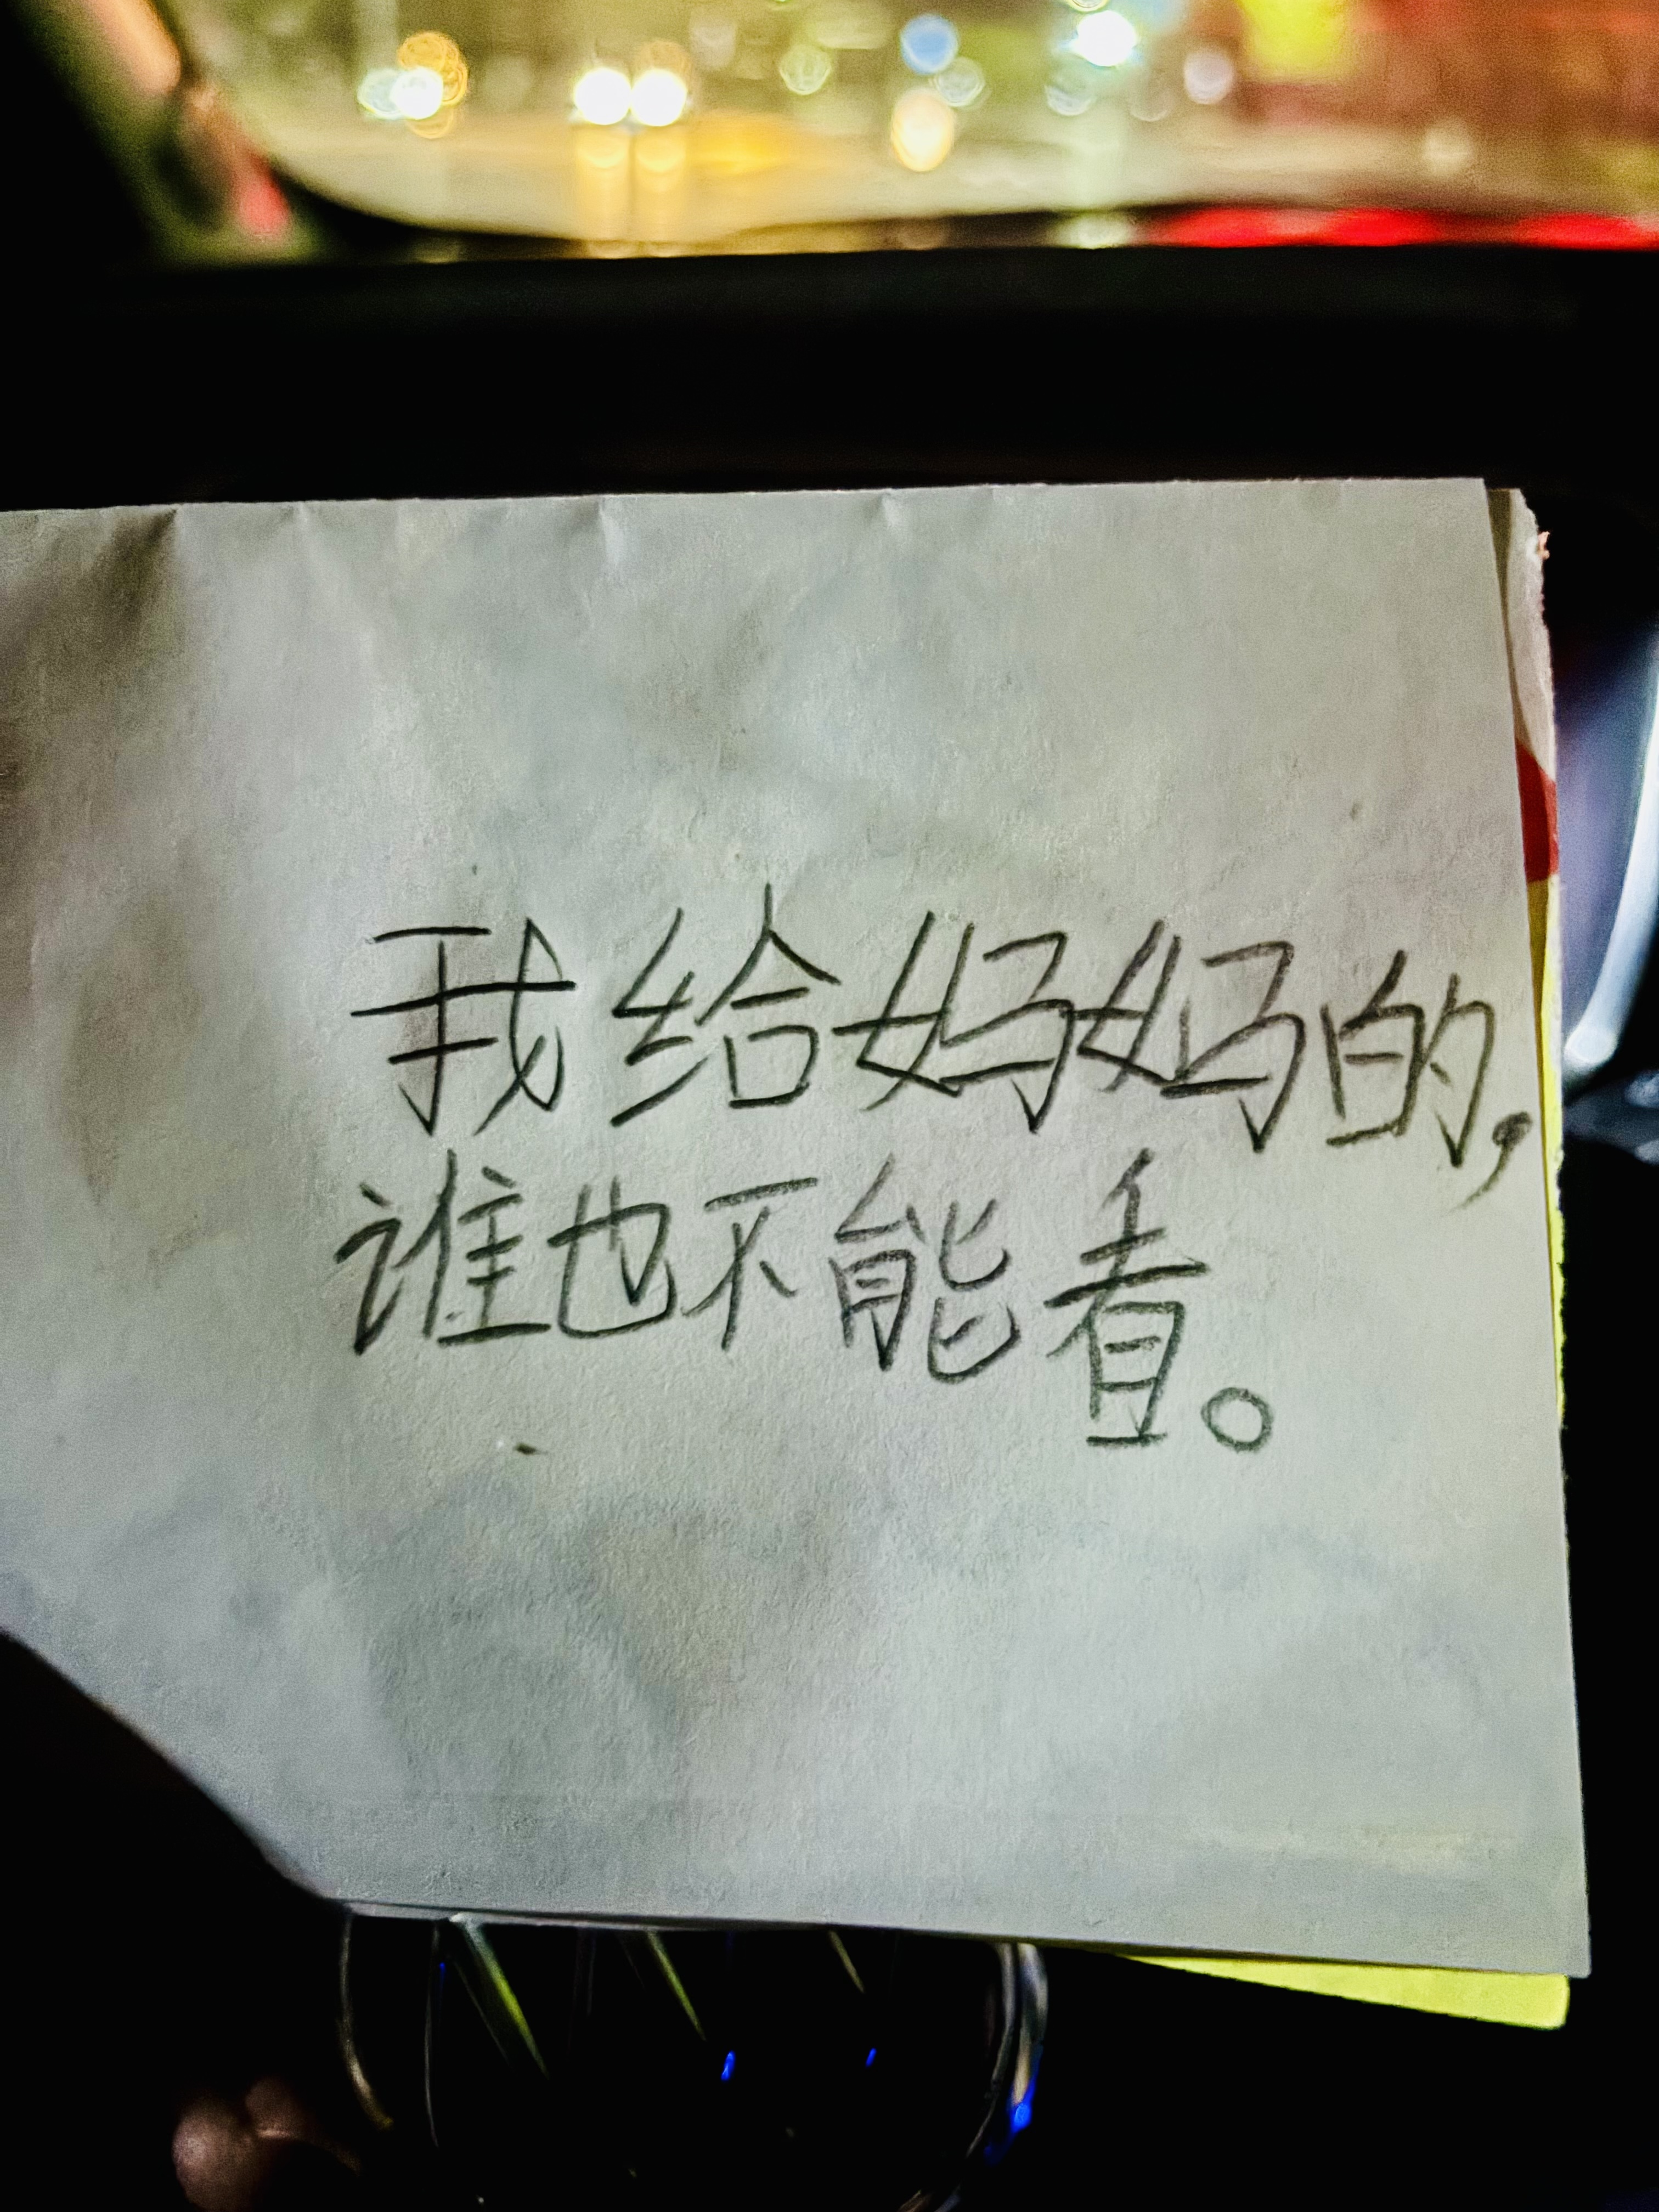 我给妈妈的，
谁也不能看。